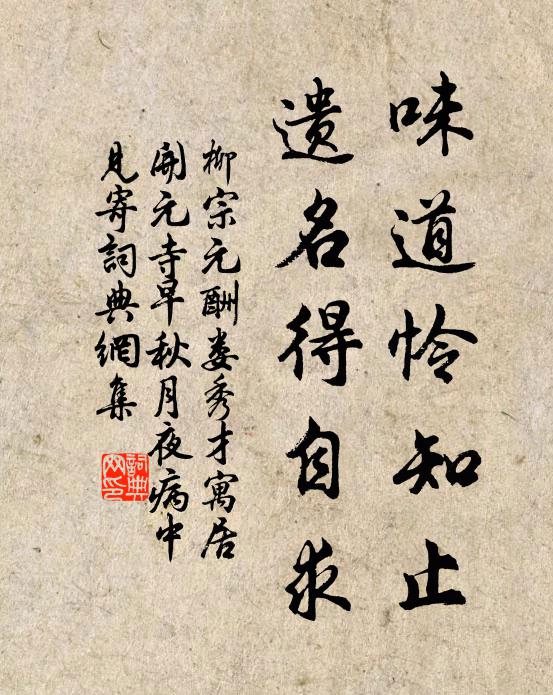 味道怜知止
遗名得自求
柳宗元酬娄秀才寓居
開元寺早秋月夜病中
見寄詞典網集
詞典
网印